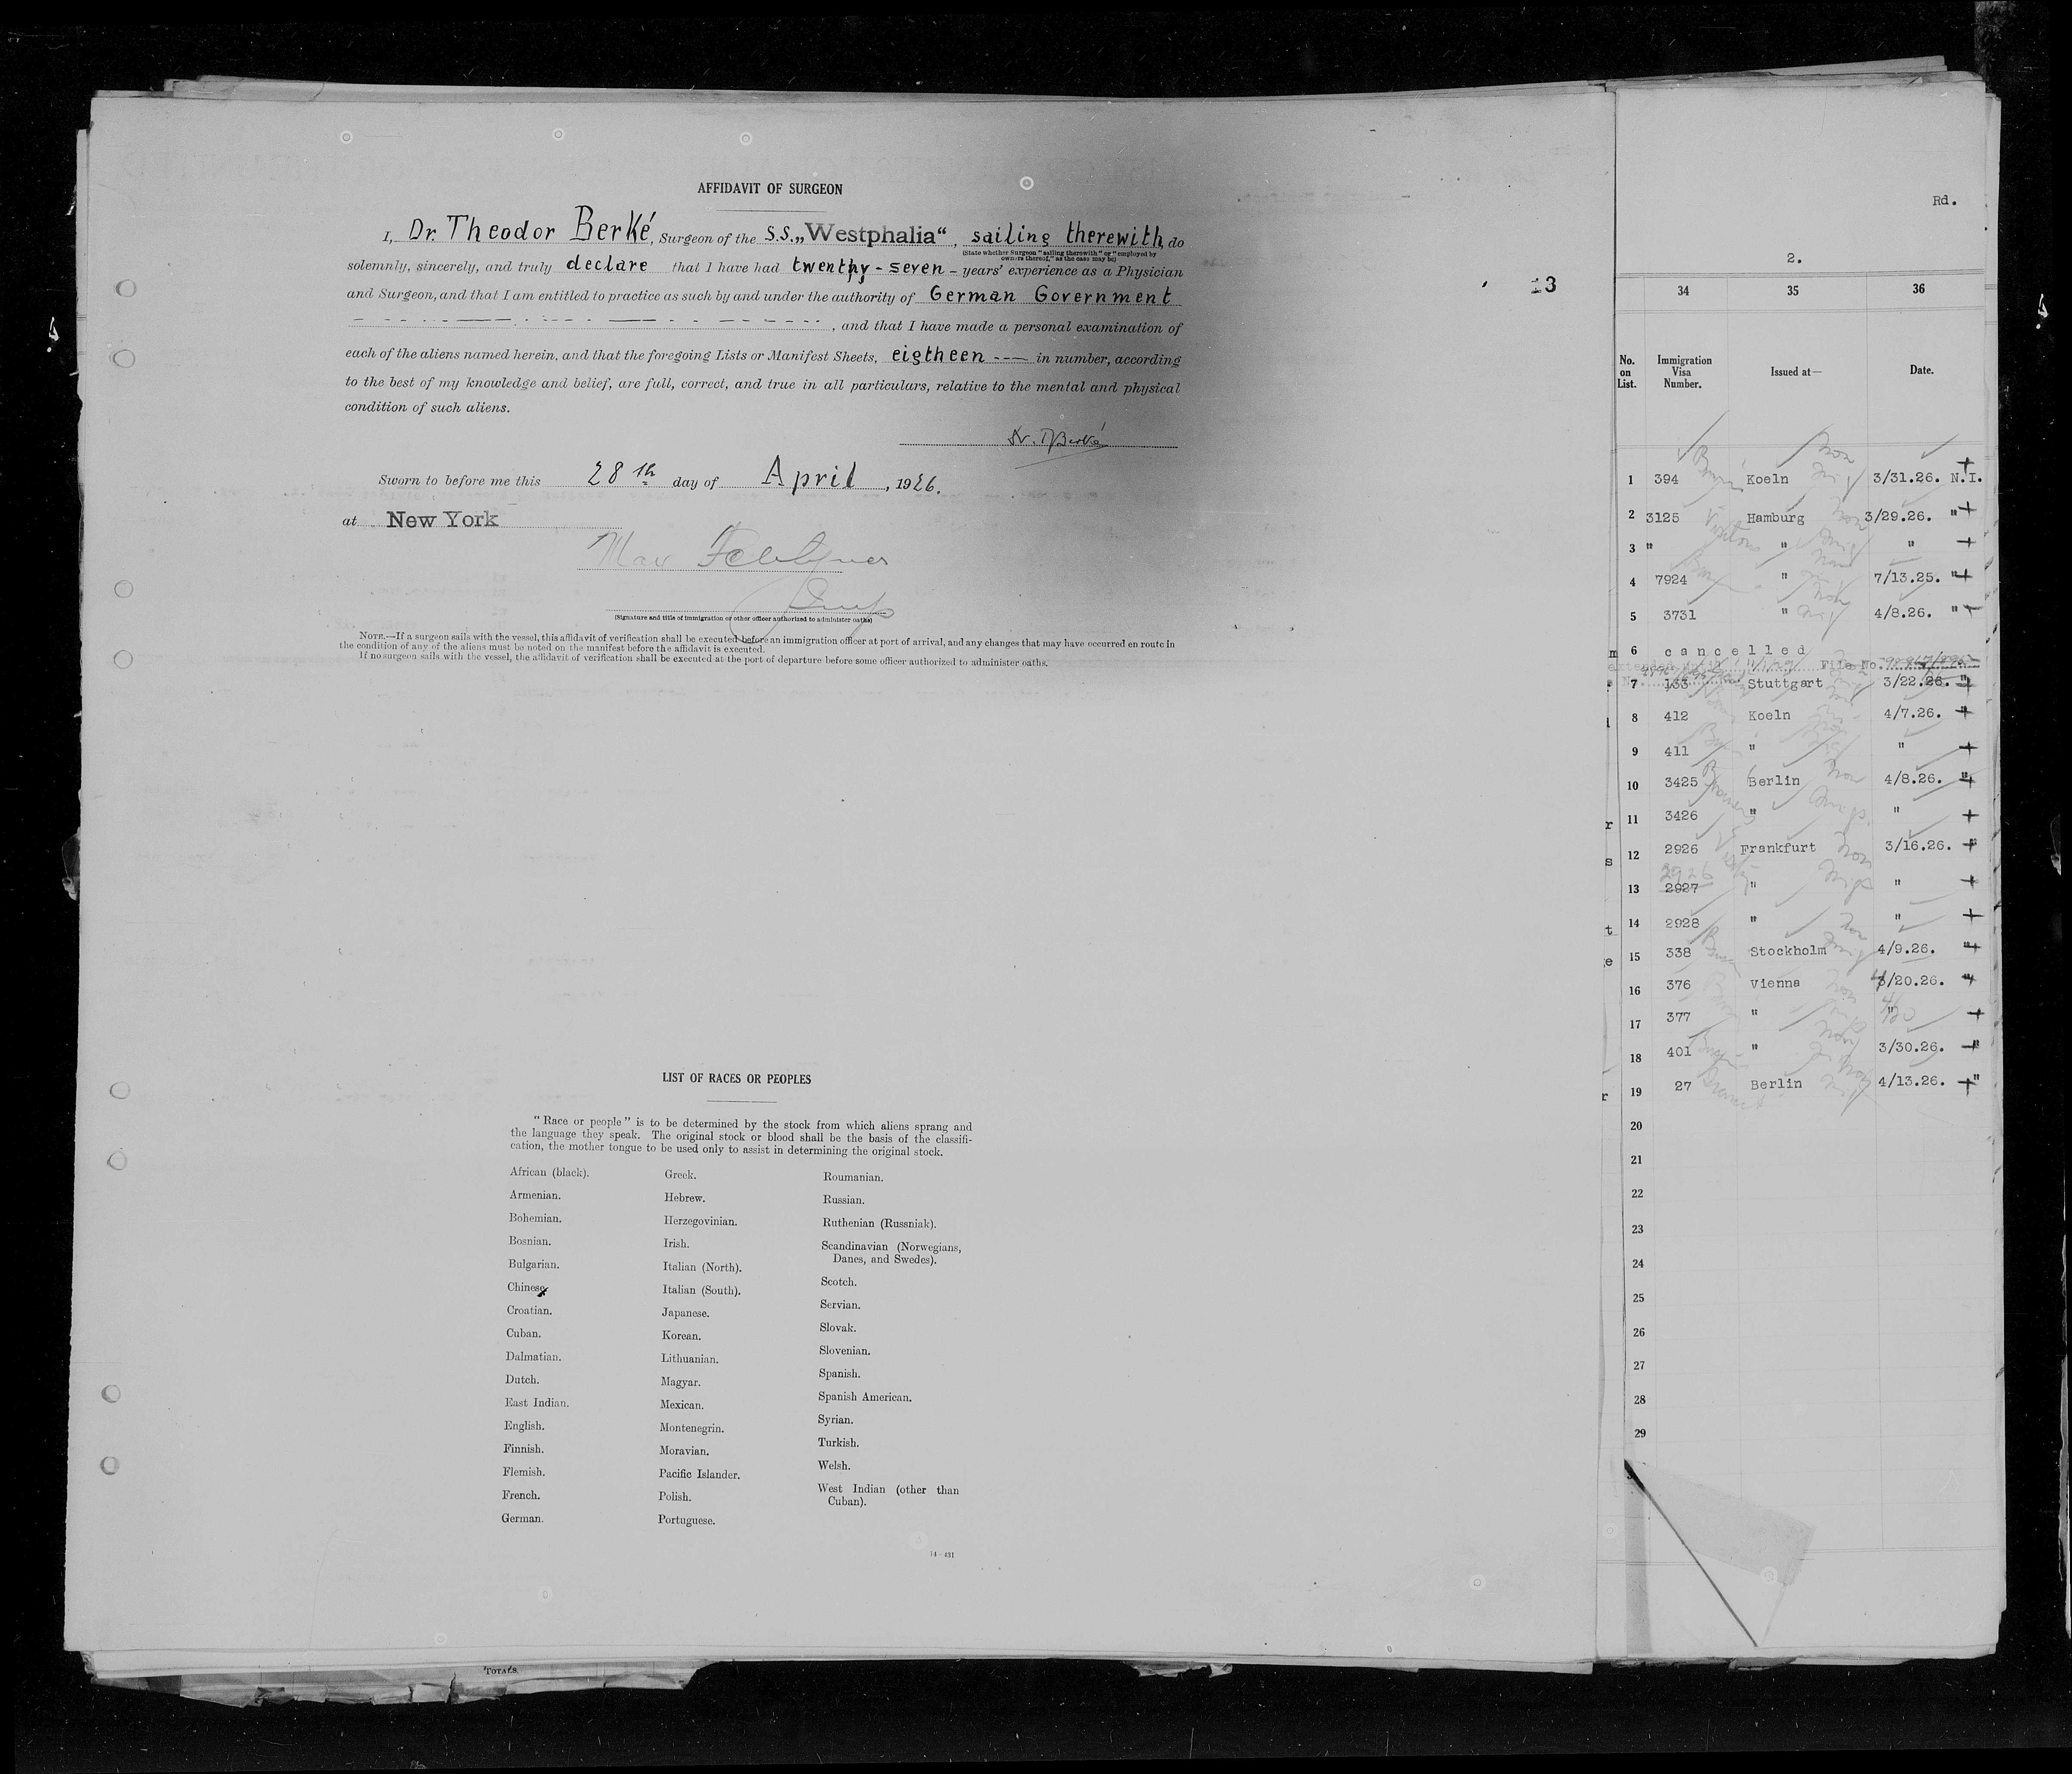 AFFIDAVIT OF SURGEON
I, Dr. Theodor Berké, Surgeon of the S.S. „Westphalia“, sailing therewith, do
(State whether Surgeon "sailing therewith" or "employed by
owners thereof," as the case may be)
solemnly, sincerely, and truly declare that I have had twenthy-seven - years' experience as a Physician
and Surgeon, and that I am entitled to practice as such by and under the authority of German Government
, and that I have made a personal examination of
each of the aliens named herein, and that the foregoing Lists or Manifest Sheets, eigtheen --- in number, according
to the best of my knowledge and belief, are full, correct, and true in all particulars, relative to the mental and physical
condition of such aliens.
Dr. Th Berké
Sworn to before me this 28th day of April, 1926.
at New York
Max
Insp
(Signature and title of immigration or other officer authorized to administer oaths)
NOTE.—If a surgeon sails with the vessel, this affidavit of verification shall be executed before an immigration officer at port of arrival, and any changes that may have occurred en route in
the condition of any of the aliens must be noted on the manifest before the affidavit is executed.
If no surgeon sails with the vessel, the affidavit of verification shall be executed at the port of departure before some officer authorized to administer oaths.
13
LIST OF RACES OR PEOPLES
"Race or people" is to be determined by the stock from which aliens sprang and
the language they speak. The original stock or blood shall be the basis of the classifi-
cation, the mother tongue to be used only to assist in determining the original stock.
African (black).
Armenian.
Bohemian.
Bosnian.
Bulgarian.
Chinese.
Croatian.
Cuban.
Dalmatian.
Dutch.
East Indian.
English.
Finnish.
Flemish.
French.
German.
Greek.
Hebrew.
Herzegovinian.
Irish.
Italian (North).
Italian (South).
Japanese.
Korean.
Lithuanian.
Magyar.
Mexican.
Montenegrin.
Moravian.
Pacific Islander.
Polish.
Portuguese.
Roumanian.
Russian.
Ruthenian (Russniak).
Scandinavian (Norwegians,
Danes, and Swedes).
Scotch.
Servian.
Slovak.
Slovenian.
Spanish.
Spanish American.
Syrian.
Turkish.
Welsh.
West Indian (other than
Cuban).
14—431
TOTALS.
Rd.
2.
34 35 36
No. on List. Immigration Visa Number. Issued at— Date.
1 394 Koeln 3/31.26. N.I.
2 3125 Hamburg 3/29.26. "
3 " " "
4 7924 " 7/13.25. "
5 3731 " 4/8.26. "
6 cancelled
File No.
7 133 Stuttgart 3/22.26. "
8 412 Koeln 4/7.26. "
9 411 " "
10 3425 Berlin 4/8.26. "
11 3426 " "
12 2926 Frankfurt 3/16.26. "
2926
13 2927 " "
14 2928 " "
15 338 Stockholm 4/9.26. "
16 376 Vienna 4/20.26. "
17 377 " "
18 401 " 3/30.26. "
19 27 Berlin 4/13.26. "
20
21
22
23
24
25
26
27
28
29